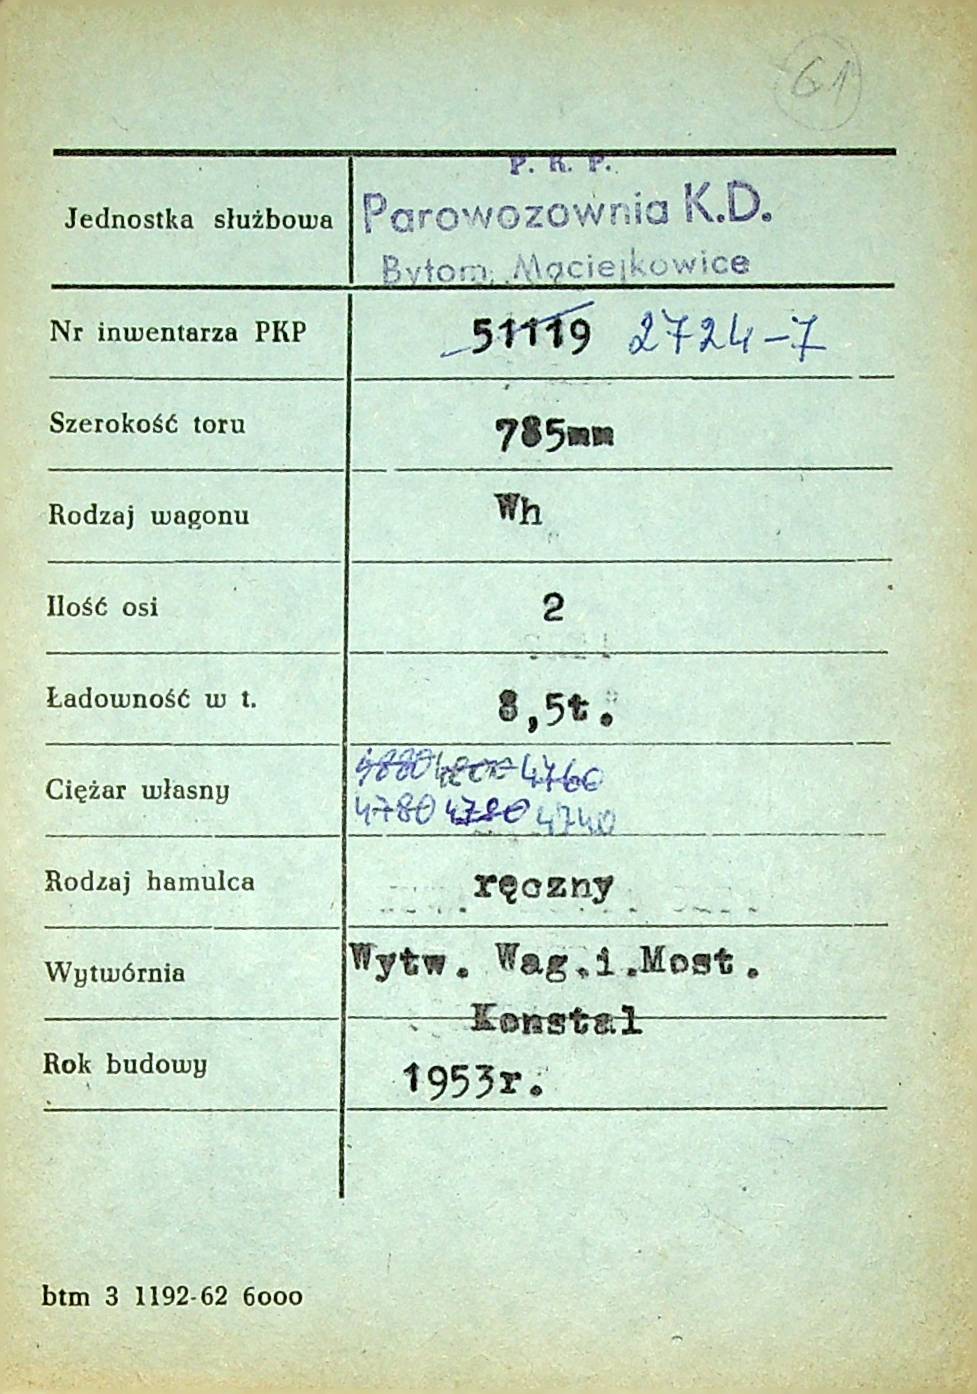 61
P. K. P.
Jednostka służbowa Parowozownia K.D.
Bytom Maciejkowice
Nr inwentarza PKP 51119 2724-7
Szerokość toru 785mm
Rodzaj wagonu Wh
Ilość osi 2
Ładowność w t. 8,5t.
4880 4800 4760
Ciężar własny
4780 4780 4740
Rodzaj hamulca ręczny
Wytwórnia Wytw. Wag.i.Most.
Konstal
Rok budowy 1953r.
btm 3 1192-62 6000